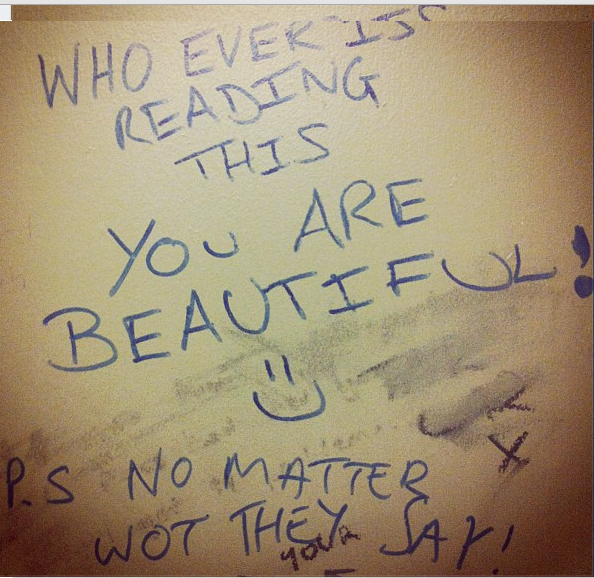 WHO EVER IS
READING
THIS
YOU ARE
BEAUTIFUL!
P.S NO MATTER
WOT THEY SAY!
YOUR